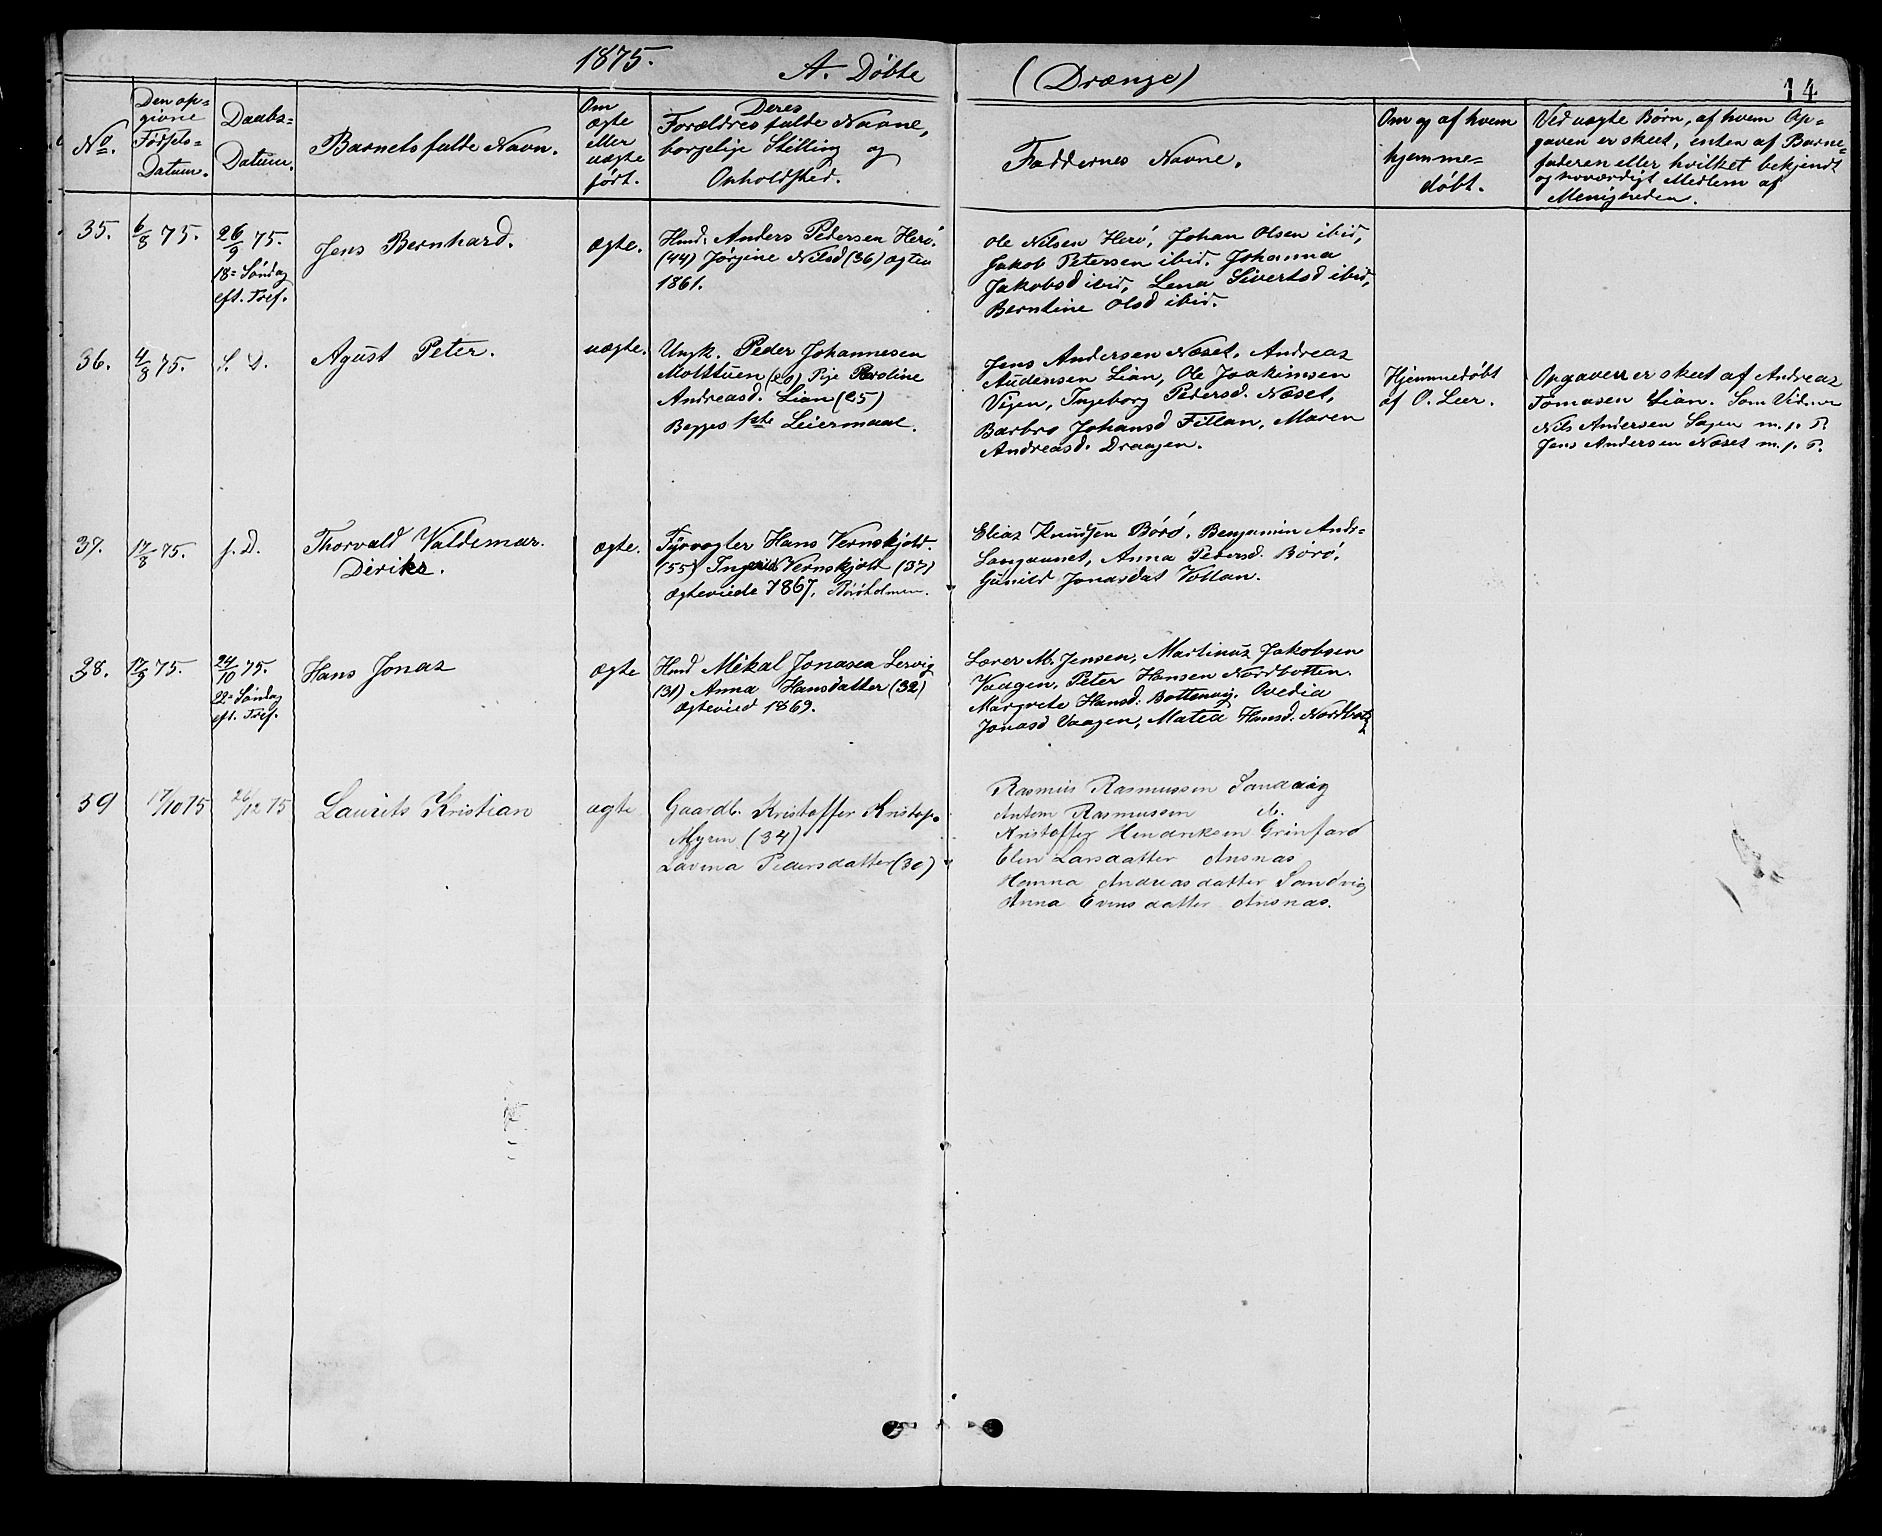 1875.
A. Döbte
(Drænge)
14
No.
Den op=
givne
Födsels=
Datum.
Daabs=
Datum.
Barnets fulde Navn.
Om
ægte
eller
uægte
født.
Deres
Forældres fulde Navne,
borgelige Stilling og
Opholdsted.
Faddernes Navne.
Om og af hvem
hjemme=
döbt.
Ved uægte Børn, af hvem Op=
gaven er skeet, enten af Barne=
faderen eller hvilket bekjendt
og troværdigt Medlem af
Menigheden.
35.
6/8 75.
26/9 75.
18= Söndag
eft. Tref.
Jens Bernhard.
ægte.
Hmd. Anders Pedersen Herö.
(44) Jørgine Nilsd (36) Ægtev
1861.
Ole Nilsen Herö, Johan Olsen ibid,
Jakob Petersen ibid. Johanna
Jakobsd ibid, Lena Sivertsd ibid,
Berntine Olsd ibid.
36.
4/8 75.
s. D.
Agust Peter.
uægte.
Ungk. Peder Johannesen
Molttuen (20) Pige Paroline
Andreasd. Lian (25)
Begges 1ste Leiermaal.
Jens Andersen Næset, Andreas
Audensen Lian, Ole Joakimsen
Vigen, Ingeborg Pedersd. Næset,
Barbro Johansd Fillan, Maren
Andreasd. Draagen.
Hjemmedöbt
af O. Leer.
Opgaven er skeet af Andreas
Tomasen Lian. Som Vidner
Nils Andersen Sagen m. p. P.
Jens Andersen Næset m. p. P.
37.
17/8 75.
s. D.
Thorvald Valdemar
Dirikz.
ægte.
Fyrvogter Hans Vernskjold.
(55) Ingerid Vernskjold (37)
Ægteviede 1867, Böröholmen.
Elias Knudsen Börö, Benjamin Andr=
Langaunet, Anna Pedersd. Börö,
Gunild Jonasdat Vollan.
38.
17/9 75.
24/10 75.
22= Søndag
eft. Tref.
Hans Jonas
ægte
Hmd Mikal Jonasen Lervig
(31) Anna Hansdatter (32)
Ægteviet 1869.
Lærer M. Jensen, Martinus Jakobsen
Vaagen, Peter Hansen Nordbotten.
Margrete Hansd. Bottenvig. Ovedia
Jonasd Vaagen, Matea Hansd. Nordbot
39
17/10 75
26/12 75
Laurits Kristian
ægte
Gaardb. Kristoffer Kristop.
Myren (34)
Lavina Pedersdatter (30)
Rasmus Rasmussen Sandvig
Anton Rasmussen do.
Kristoffer Hendriksen Grinfard
Elen Larsdatter Ansnas
Hanna Andreasdatter Sandvig
Anna Evensdatter Ansnas.